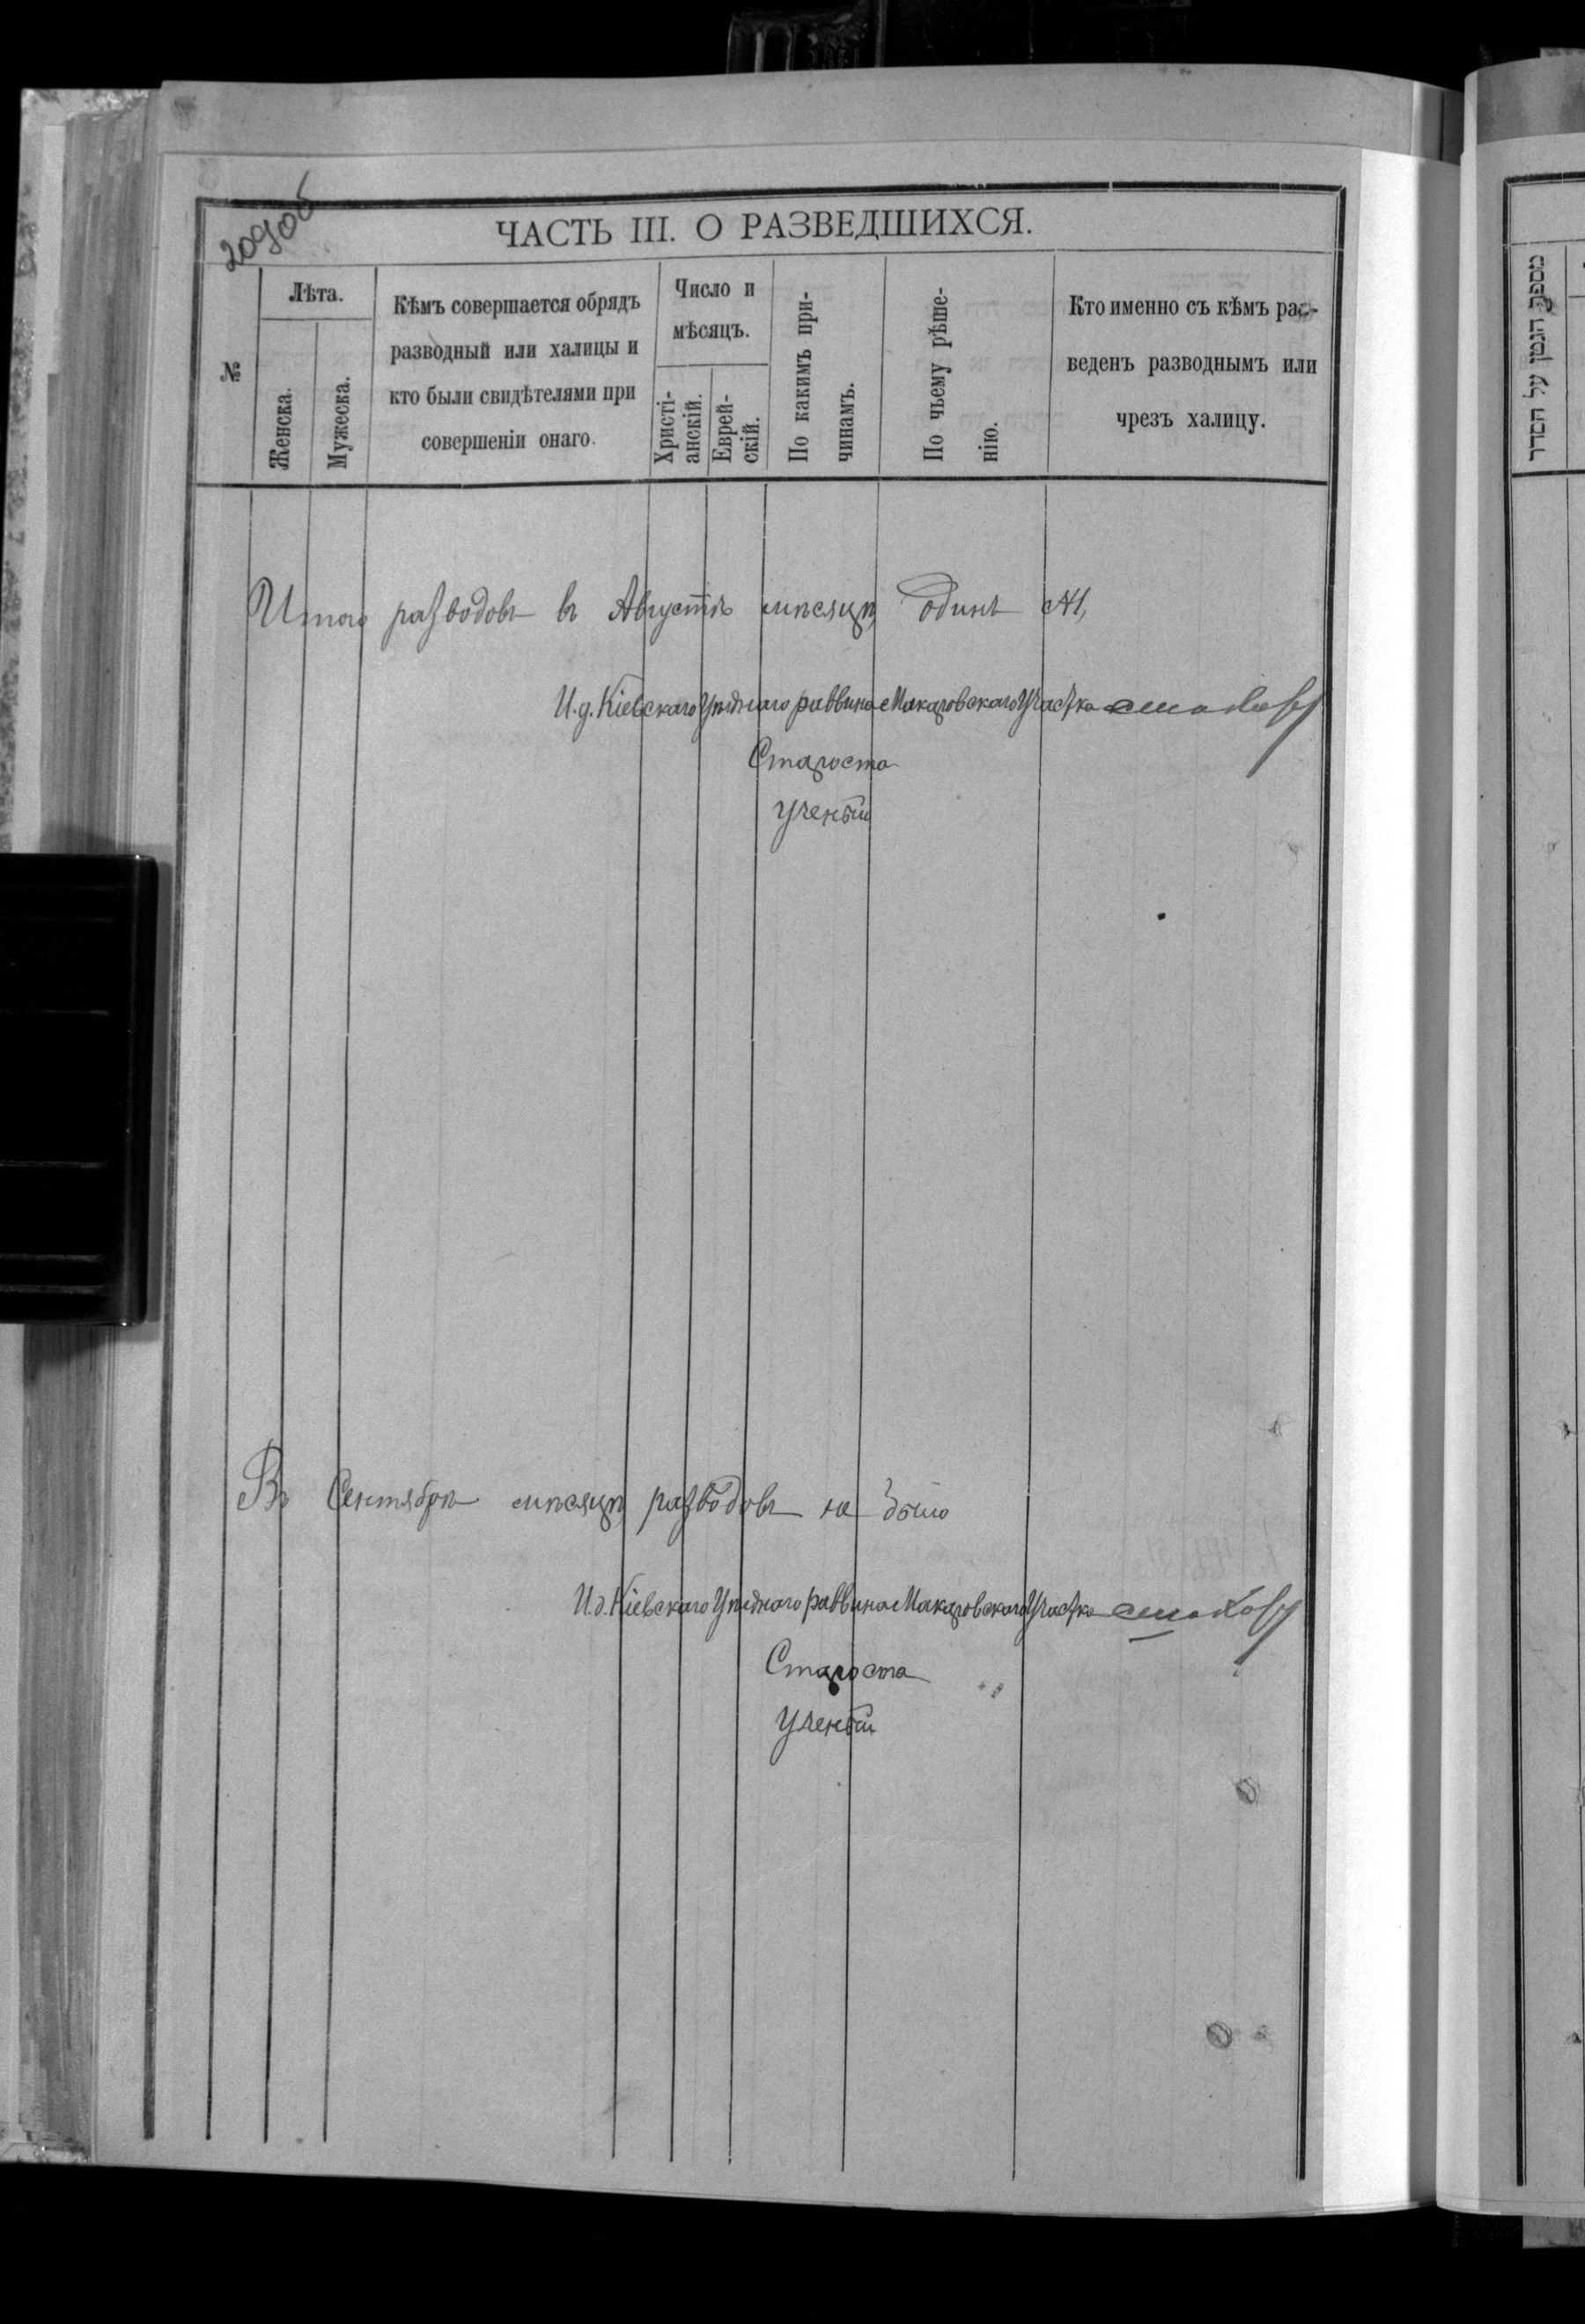 209об
ЧАСТЬ III. О РАЗВЕДШИХСЯ.
№
Лѣта.
Женска.
Мужеска.
Кѣмъ совершается обрядъ
разводный или халицы и
кто были свидѣтелями при
совершеніи онаго.
Число и
мѣсяцъ.
Христі-
анскій.
Еврей-
скій.
По какимъ при-
чинамъ.
По чьему рѣше-
нію.
Кто именно съ кѣмъ раз-
веденъ разводнымъ или
чрезъ халицу.
Итого разводовъ въ Августѣ мѣсяцѣ одинъ
И.д. Кіевскаго Уѣзднаго раввина Макаровскаго Участка
Староста
Ученый
Въ Сентябрѣ мѣсяцѣ разводовъ не было
И.д. Кіевскаго Уѣзднаго раввина Макаровскаго Участка
Староста
Ученый
מספר הגטן על הסדר